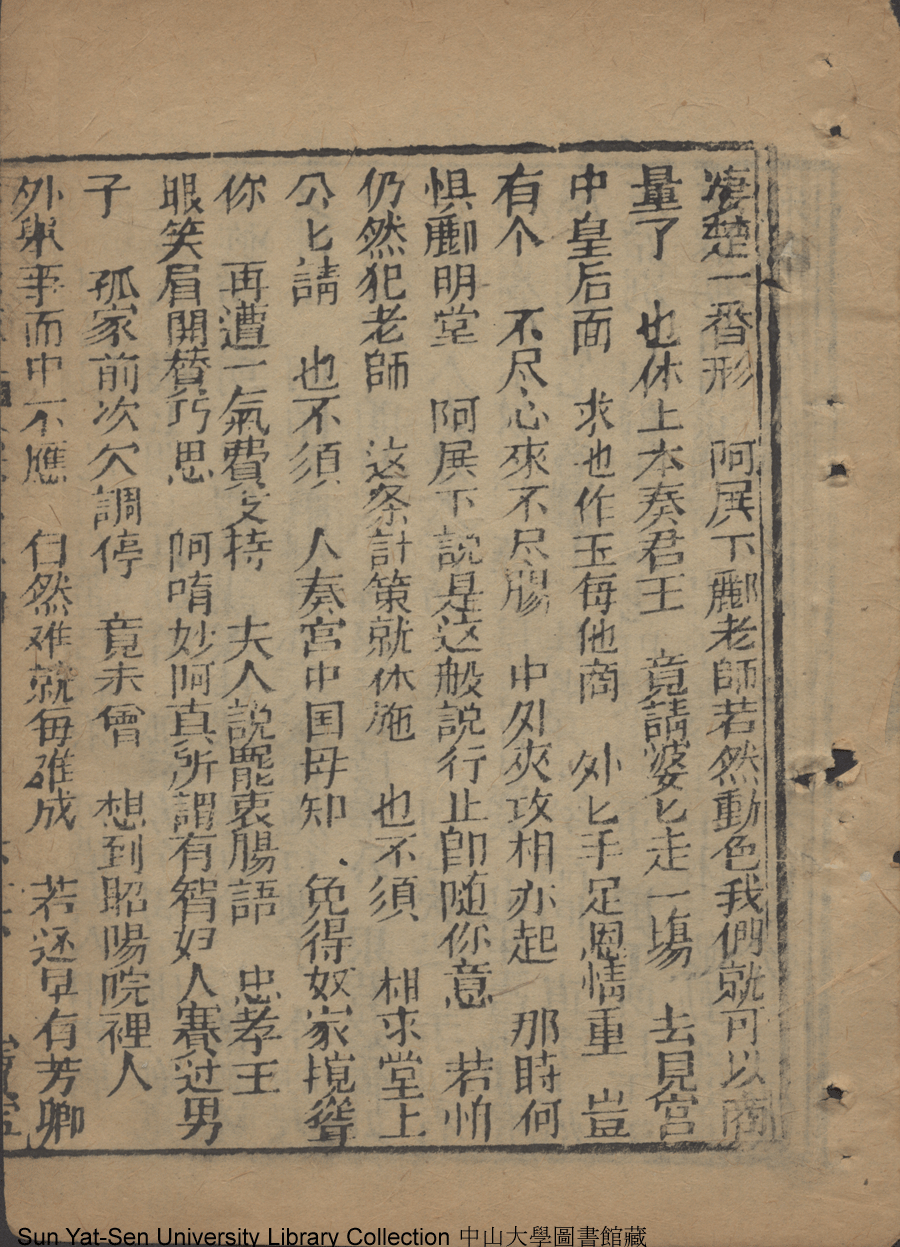 凄楚一番形　阿展下酈老師若然動色我們就可以商
量了　也休上本奏君王　竟請婆匕走一塲　去見宮
中皇后面　求他作主每他商　外匕手足恩情重　豈
有个　不尽心來不尽膓　中外夾攻相亦起　那時何
惧酈明堂　阿展下說是这般說行止即随你意　若怕
仍然犯老師　这条計策就休施　也不須　相求堂上
公匕請　也不須　人奏宮中国母知　免得奴家攪聳
你　再遭一氣費支持　夫人說罷衷膓語　忠孝王
眼笑眉開賛巧思　阿唷妙阿真所謂有智妇人賽过男
子　孤家前次欠調停　竟未曾　想到昭陽院裡人
外臾事而中不應　自然难就每难成　若还早有芳卿